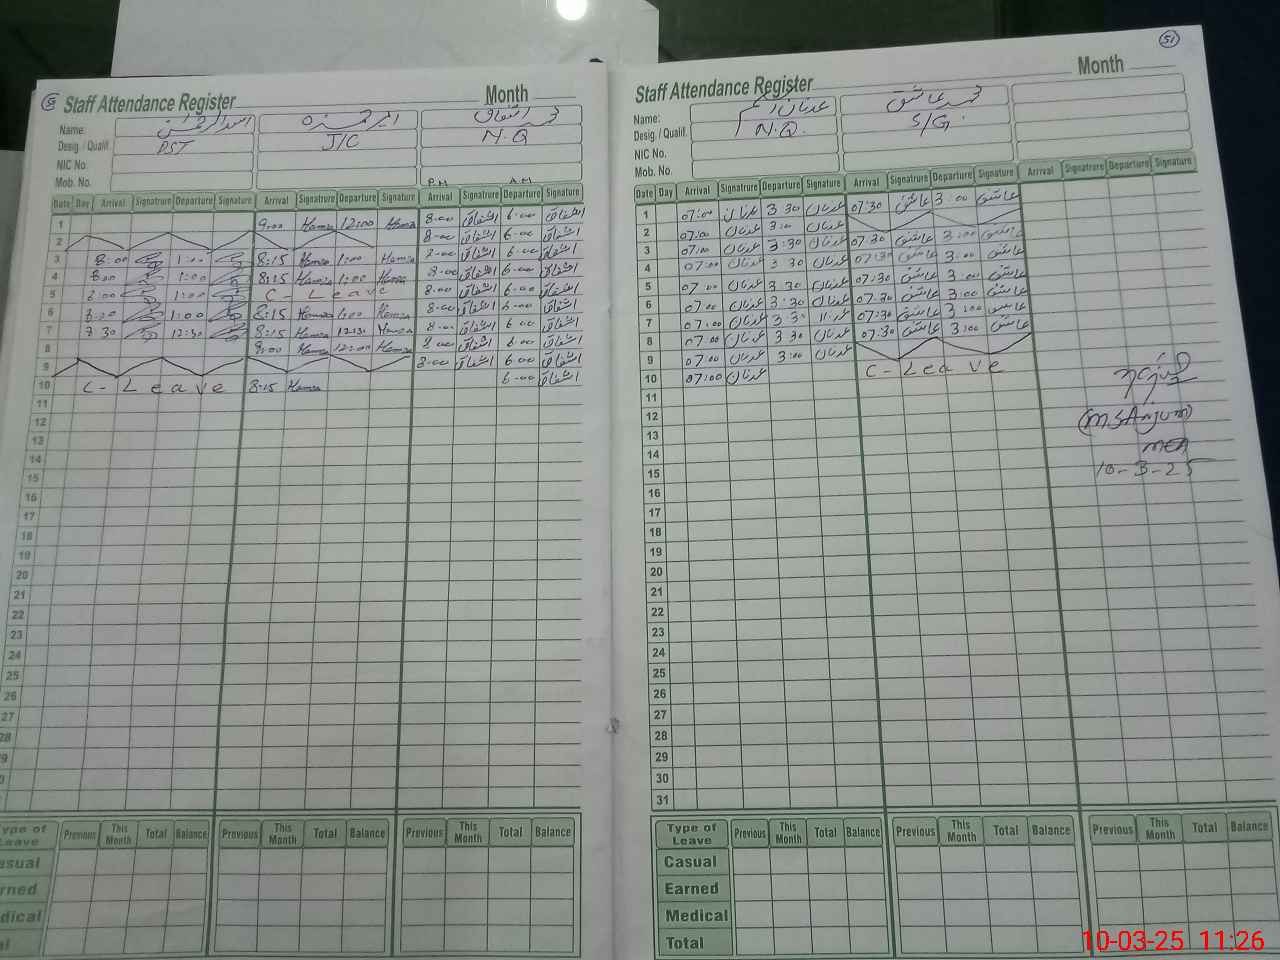 Staff Attendance Register Month
Name:
Desig. / Qualif. PST J/C N.Q
NIC No.
Mob. No. P.M A.M
Date Day Arrival Signatrure Departure Signature Arrival Signature Departure Signature Arrival Signatrure Departure Signature
1 9:00 Hamza 12:00 Hamza 8-00 اشفاق 6-00 اشفاق
2 8-00 اشفاق 6-00 اشفاق
3 8:00 1:00 8:15 Hamza 1:00 Hamza 8-00 اشفاق 6-00 اشفاق
4 8:00 1:00 8:15 Hamza 1:00 Hamza 8-00 اشفاق 6-00 اشفاق
5 8:00 1:00 C - Leave 8-00 اشفاق 6-00 اشفاق
6 8:00 1:00 8:15 Hamza 1:00 Hamza 8-00 اشفاق 6-00 اشفاق
7 7:30 12:30 8:15 Hamza 12:30 Hamza 8-00 اشفاق 6-00 اشفاق
8 9:00 Hamza 12:00 Hamza 8-00 اشفاق 6-00 اشفاق
9 8-00 اشفاق 6-00 اشفاق
10 C - Leave 8:15 Hamza 6-00 اشفاق
11
12
13
14
15
16
17
18
19
20
21
22
23
24
25
26
27
28
Type of Leave Previous This Month Total Balance Previous This Month Total Balance Previous This Month Total Balance
Casual
Earned
Medical
51
Staff Attendance Register Month
Name: محمد عاشق
Desig. / Qualif. N.Q. S/G
NIC No.
Mob. No.
Date Day Arrival Signatrure Departure Signature Arrival Signatrure Departure Signature Arrival Signatrure Departure Signature
1 07:00 عدنان 3 30 عدنان 07:30 عاشق 3:00 عاشق
2 07:00 عدنان 3:00 عدنان
3 07:00 عدنان 3:30 عدنان 07:30 عاشق 3:00 عاشق
4 07:00 عدنان 3 30 عدنان 07:30 عاشق 3:00 عاشق
5 07:00 عدنان 3 30 عدنان 07:30 عاشق 3:00 عاشق
6 07:00 عدنان 3:30 عدنان 07:30 عاشق 3:00 عاشق
7 07:00 عدنان 07:30 عاشق 3:00 عاشق
8 07:00 عدنان 3 30 عدنان 07:30 عاشق 3:00 عاشق
9 07:00 عدنان 3:00 عدنان
10 07:00 عدنان C - Leave
11
12 (M.S Anjum)
13
14 MEA
15 10-3-25
16
17
18
19
20
21
22
23
24
25
26
27
28
29
30
31
Type of Leave Previous This Month Total Balance Previous This Month Total Balance Previous This Month Total Balance
Casual
Earned
Medical
Total
10-03-25 11:26